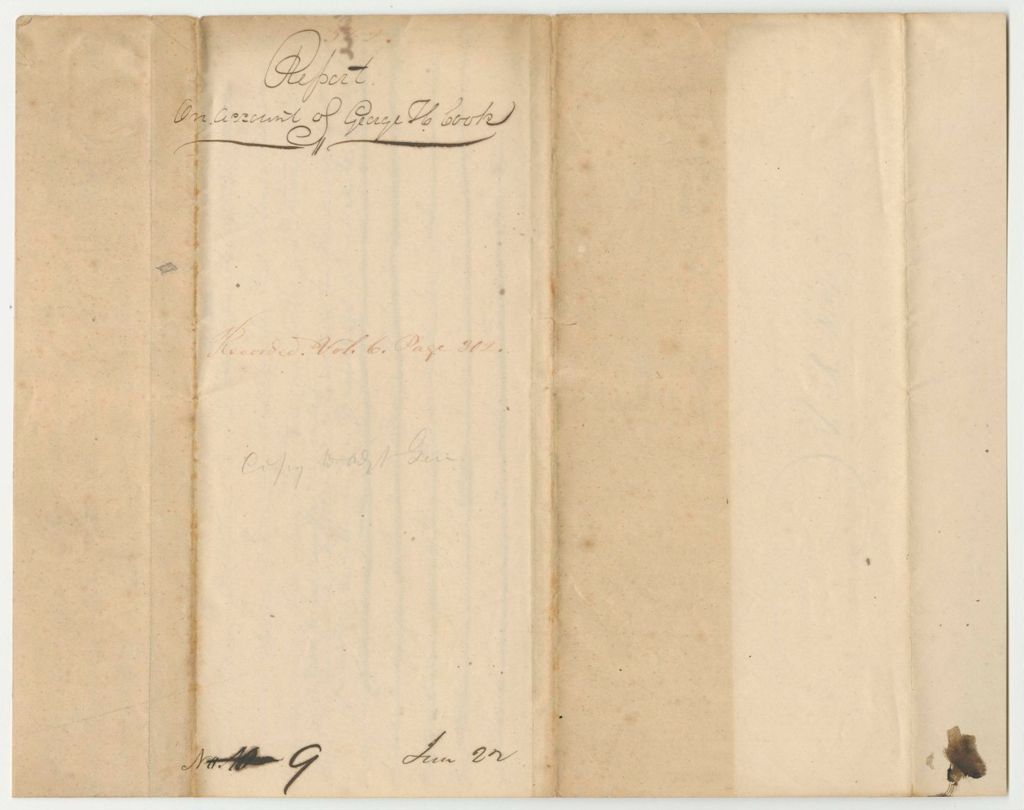 Report
On Account of George H. Cook
Recorded. Vol. 6. Page 304.
Copy to Adjt Gen
No. 9
Jun 22